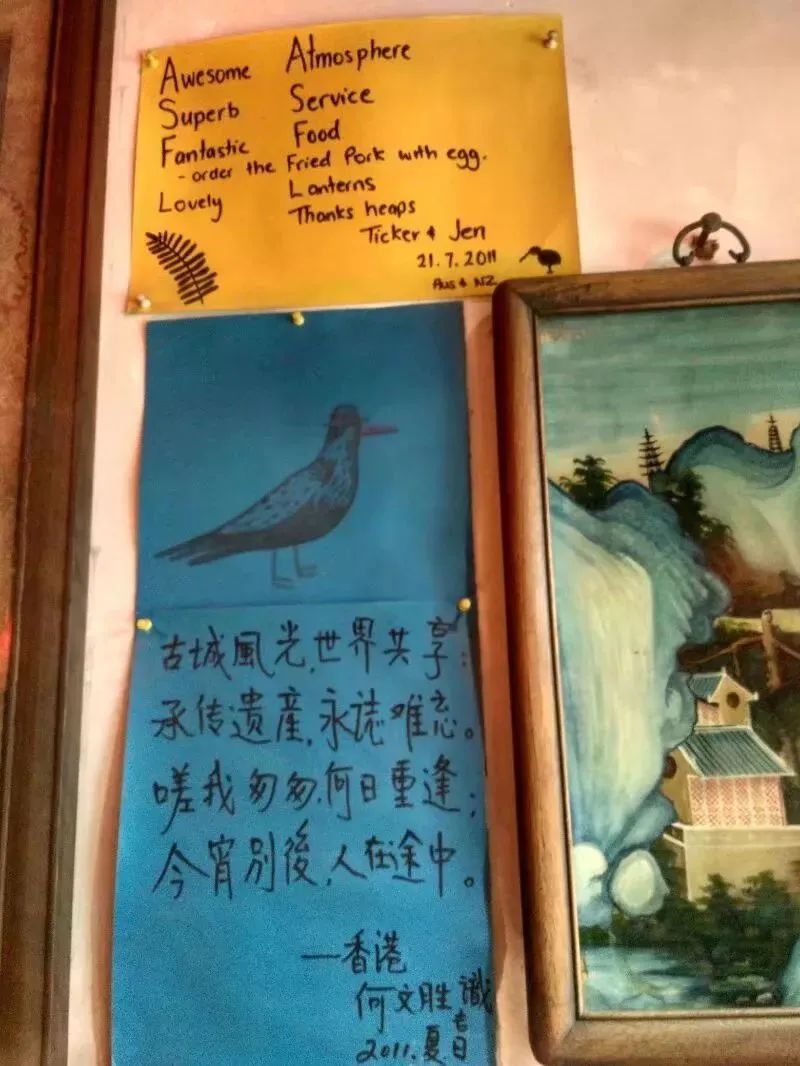 Awesome Atmosphere
Superb Service
Fantastic Food
- order the Fried Pork with egg.
Lovely Lanterns
Thanks heaps
Ticker & Jen
21.7.2011
Aus & NZ
古城風光,世界共享;
承传遗産,永誌难忘。
嗟我匆匆,何日重逢;
今宵别後,人在途中。
—香港
何文胜識
2011.夏日